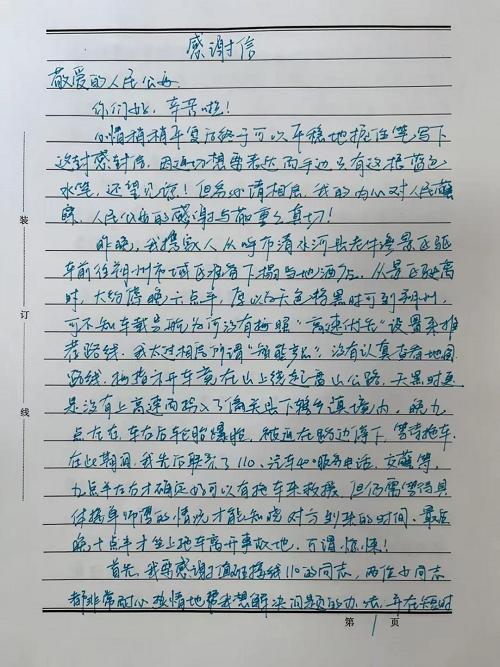 感谢信
敬爱的人民公安:
你们好,辛苦啦!
心情稍稍平复后终于可以平稳地握住笔写下
这封感谢信,因迫切想要表达而手边只有这根蓝色
水笔,还望见谅!但务必请相信,我的内心对人民
人民公安的感谢与敬重之真切!
昨晚,我携家人从呼市清水河县老牛湾景区驱
车前往朔州市城区准备下榻当地酒店。从景区驶离
时,大约傍晚六点半,原以为天色将黑时可到朔州,
可不知车载导航为何没有按照“高速优先”设置来推
荐路线,我太过相信所谓“智能导航”,没有认真查看地图
路线,按指示开车竟在山上绕起盘山公路,天黑时更
是没有上高速而驶入了偏关县下辖乡镇境内,晚九
点左右,车右后车轮胎爆胎,被迫在路边停下,等待拖车
在此期间,我先后联系了110、汽车400服务电话、交警等,
九点半左右才确定好可以有拖车来救援,但仍需等待具
体接单师傅的情况才能知晓对方到来的时间,最后
晚十点半才坐上拖车离开事故地,可谓惊悚!
首先,我要感谢值班接线110的同志,两位女同志
都非常耐心热情地帮我想解决问题的办法,并在短时
装
订
线
第 1 页